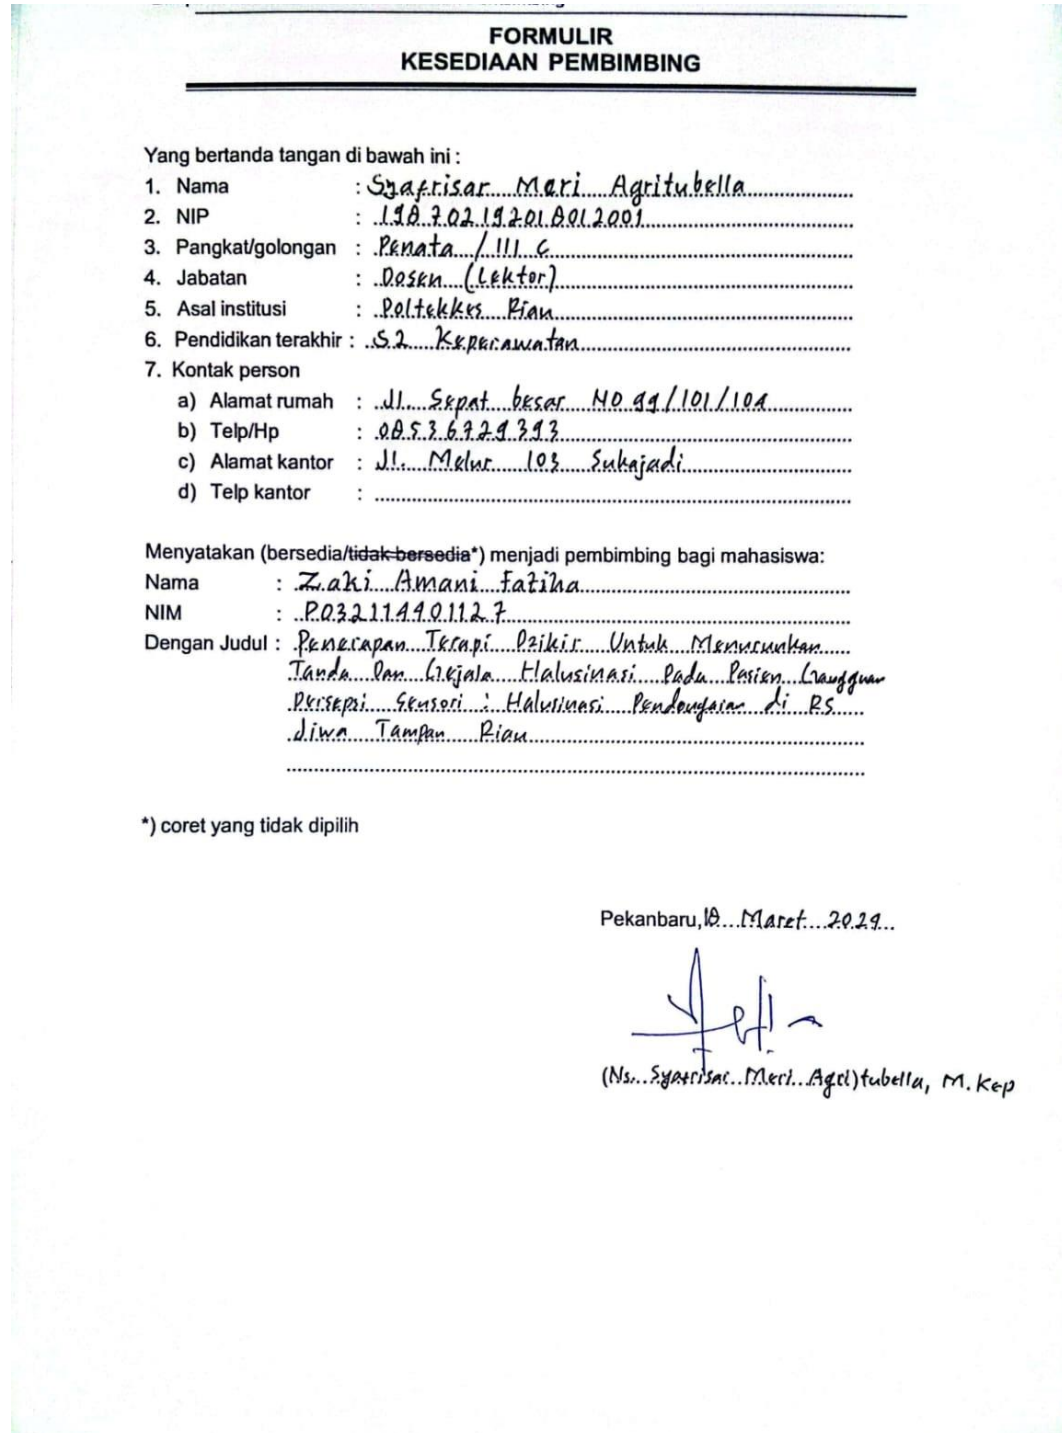 FORMULIR
KESEDIAAN PEMBIMBING
Yang bertanda tangan di bawah ini :
1. Nama : Syafrisar Meri Agritubella
2. NIP : 198702192018012001
3. Pangkat/golongan : Penata / III C
4. Jabatan : Dosen (Lektor)
5. Asal institusi : Poltekkes Riau
6. Pendidikan terakhir : S2 Keperawatan
7. Kontak person
a) Alamat rumah : Jl. Sepat besar NO 99/101/104
b) Telp/Hp : 
c) Alamat kantor : Jl. Melur 103 Sukajadi
d) Telp kantor :
Menyatakan (bersedia/tidak bersedia*) menjadi pembimbing bagi mahasiswa:
Nama : Zaki Amani Fatiha
NIM : P032114401127
Dengan Judul : Penerapan Terapi Dzikir Untuk Menurunkan
Tanda Dan Gejala Halusinasi Pada Pasien Gangguan
Persepsi Sensori : Halusinasi Pendengaran di RS
Jiwa Tampan Riau
*) coret yang tidak dipilih
Pekanbaru, 18 Maret 2024
(Ns. Syafrisar Meri Agri)tubella, M. Kep